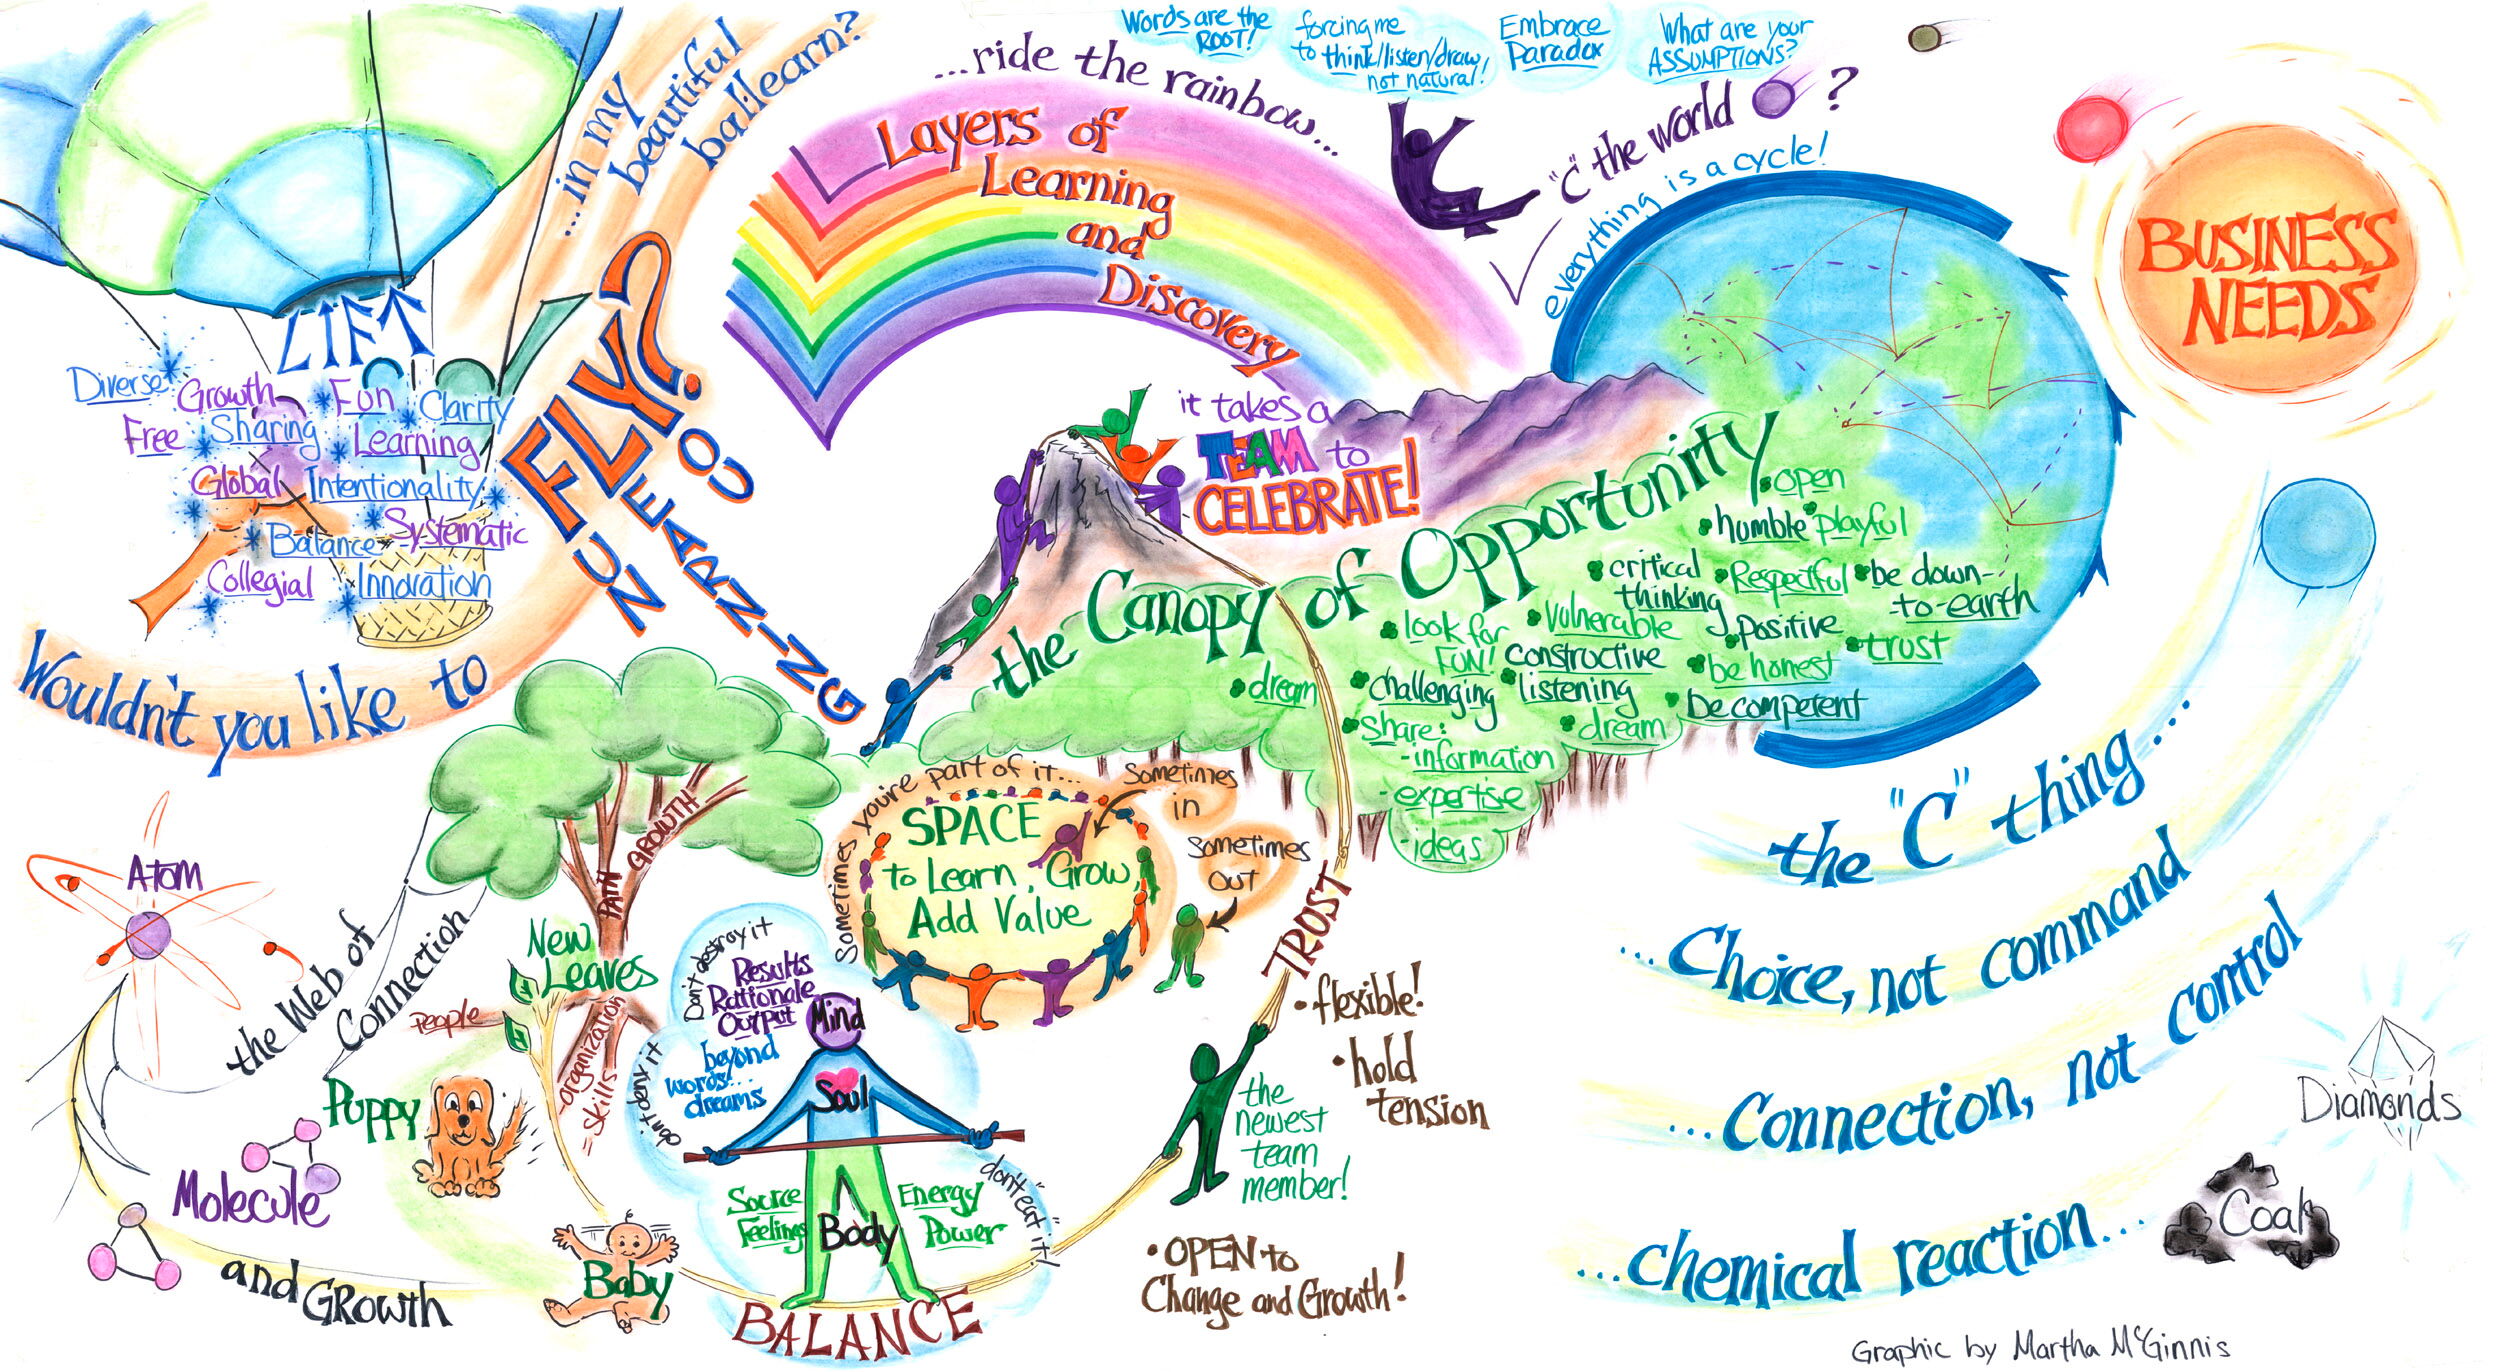 Wouldn't you like to
FLY?
...in my
beautiful
bal-learn?
UNLEARNING
LIFT
Diverse
Growth
Fun
Clarity
Free
Sharing
Learning
Global
Intentionality
Balance
Systematic
Collegial
Innovation
...ride the rainbow...
Layers of
Learning
and
Discovery
Words are the
ROOT!
forcing me
to think/listen/draw
not natural!
Embrace
Paradox
What are your
ASSUMPTIONS?
"C" the world ?
everything is a cycle!
BUSINESS
NEEDS
it takes a
TEAM to
CELEBRATE!
the Canopy of Opportunity
open
humble
playful
critical
thinking
Respectful
be down-
-to-earth
look for
FUN!
vulnerable
positive
trust
constructive
be honest
dream
challenging
listening
be competent
Share:
-information
dream
-expertise
-ideas
PATH
GROWTH
New
Leaves
People
-organization
=skills
Atom
the Web of
Connection
Puppy
Molecule
and GRowth
Baby
Sometimes you're part of it...
SPACE
to Learn, Grow,
Add Value
Sometimes
in
Sometimes
OUT
Don't destroy it
Results
Rationale
Output
Mind
don't deny it
beyond
words...
dreams
Soul
Source
Feelings
Body
Energy
Power
don't "eat" it!
BALANCE
TRUST
• flexible!
• hold
tension
the
newest
team
member!
• OPEN to
Change and Growth!
the "C" thing...
...Choice, not command
...Connection, not control
...chemical reaction...
Diamonds
Coal
Graphic by Martha McGinnis